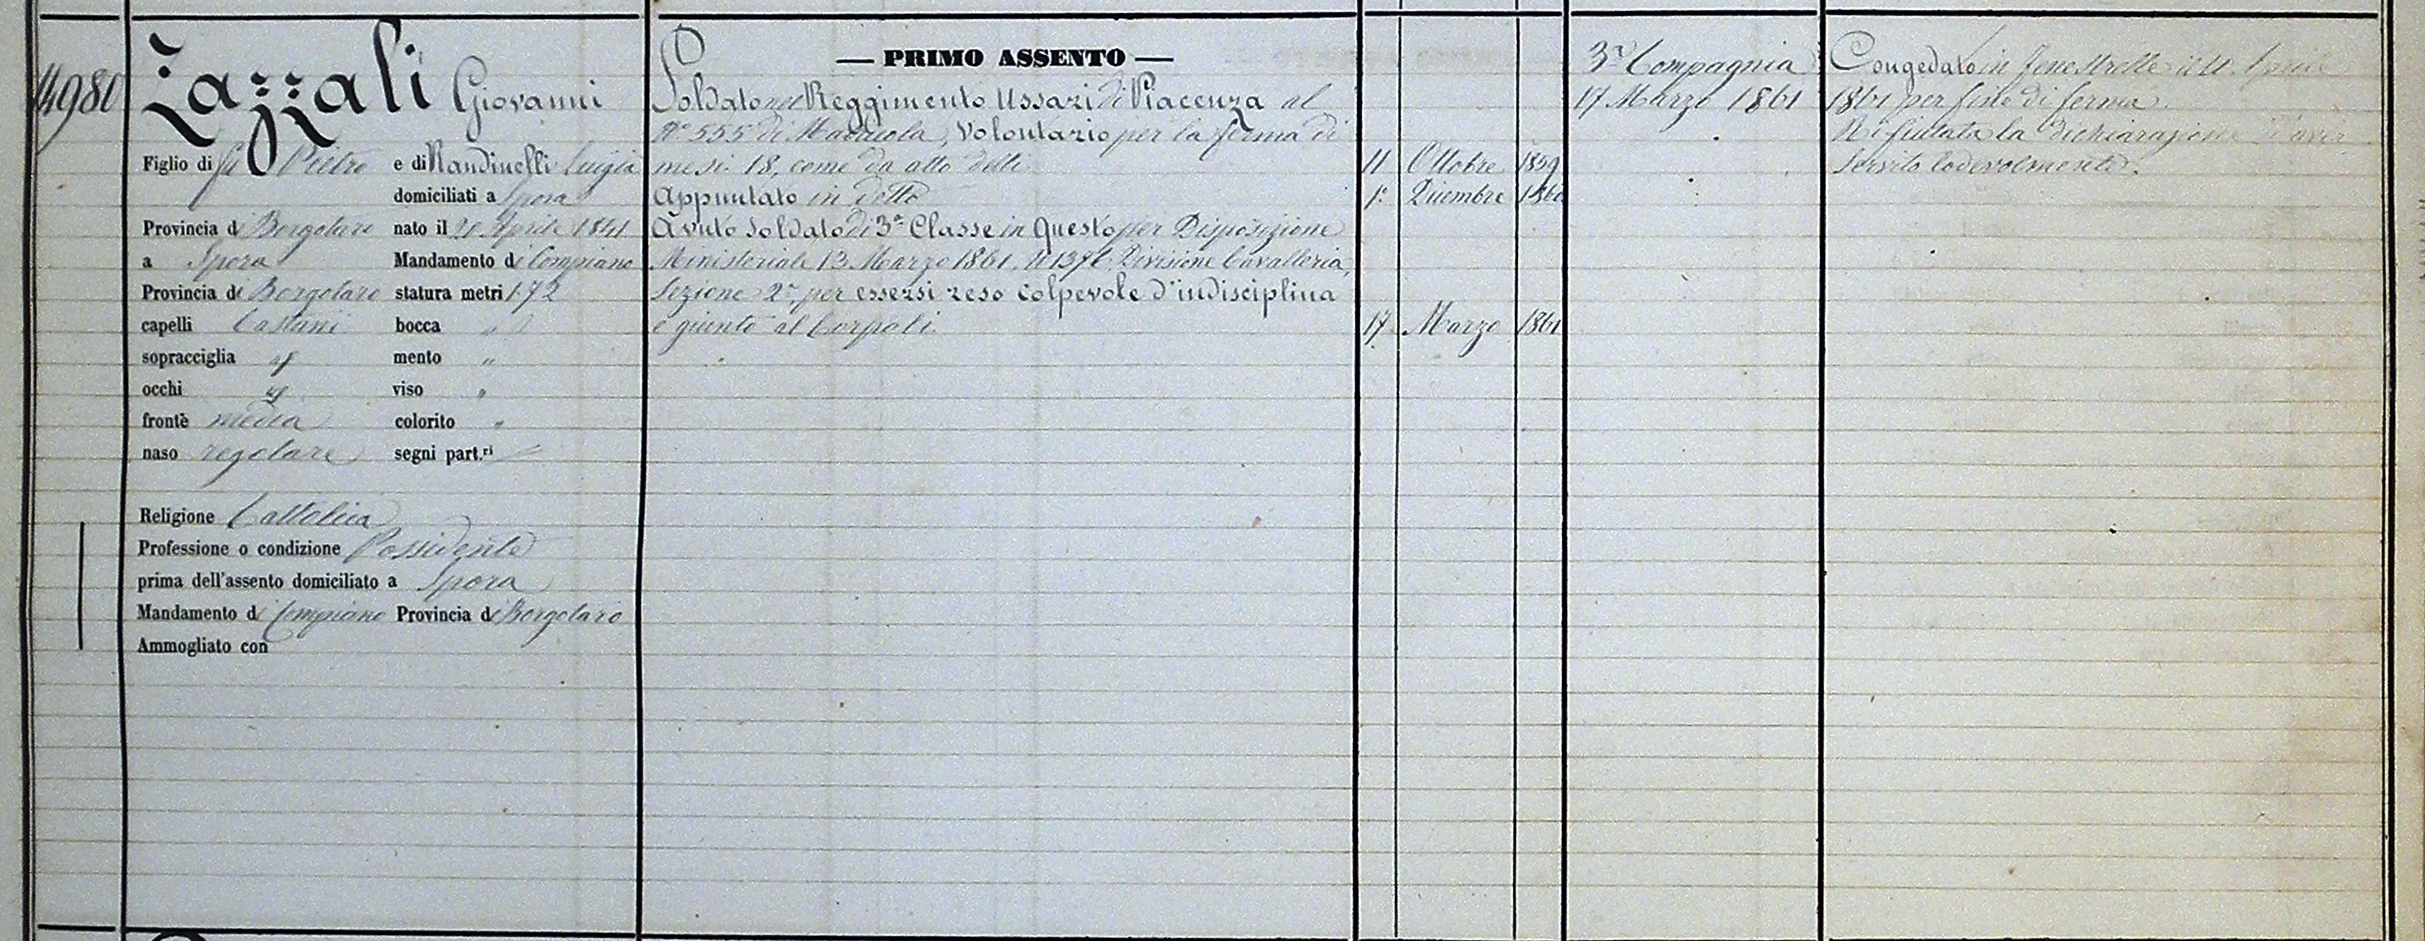 14980
Zazzali Giovanni
Figlio di fu Pietro e di Randinelli Luigia
domiciliati a Spora
Provincia di Borgotaro nato il 21 Aprile 1841
a Spora Mandamento di Compiano
Provincia di Borgotaro statura metri 1.72
capelli Castani bocca "
sopracciglia id mento "
occhi id viso "
fronte media colorito "
naso regolare segni part.ri
Religione Cattolica
Professione o condizione Possidente
prima dell'assento domiciliato a Spora
Mandamento di Compiano Provincia di Borgotaro
Ammogliato con
— PRIMO ASSENTO —
Soldato nel Reggimento Ussari di Piacenza al
N° 555 di Matricola, Volontario per la ferma di
mesi 18, come da atto delli 11 Ottobre 1859
Appuntato in detto 1° Dicembre 1860
Avuto Soldato di 3a Classe in Questo per Disposizione
Ministeriale 13 Marzo 1861, N 1376 Divisione Cavalleria,
Sezione 2a, per essersi reso colpevole d'indisciplina
e giunto al Corpo li 17 Marzo 1861
3a Compagnia
17 Marzo 1861
Congedato in Fenestrelle il 11 Aprile
1861 per fine di ferma.
Rifiutata la dichiarazione d'aver
Servito lodevolmente.